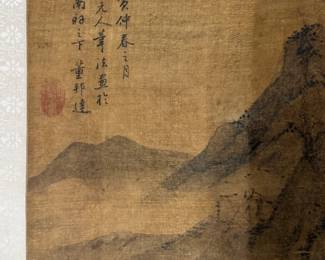 亥仲春之月
元人筆法畫於
南窗之下董邦達